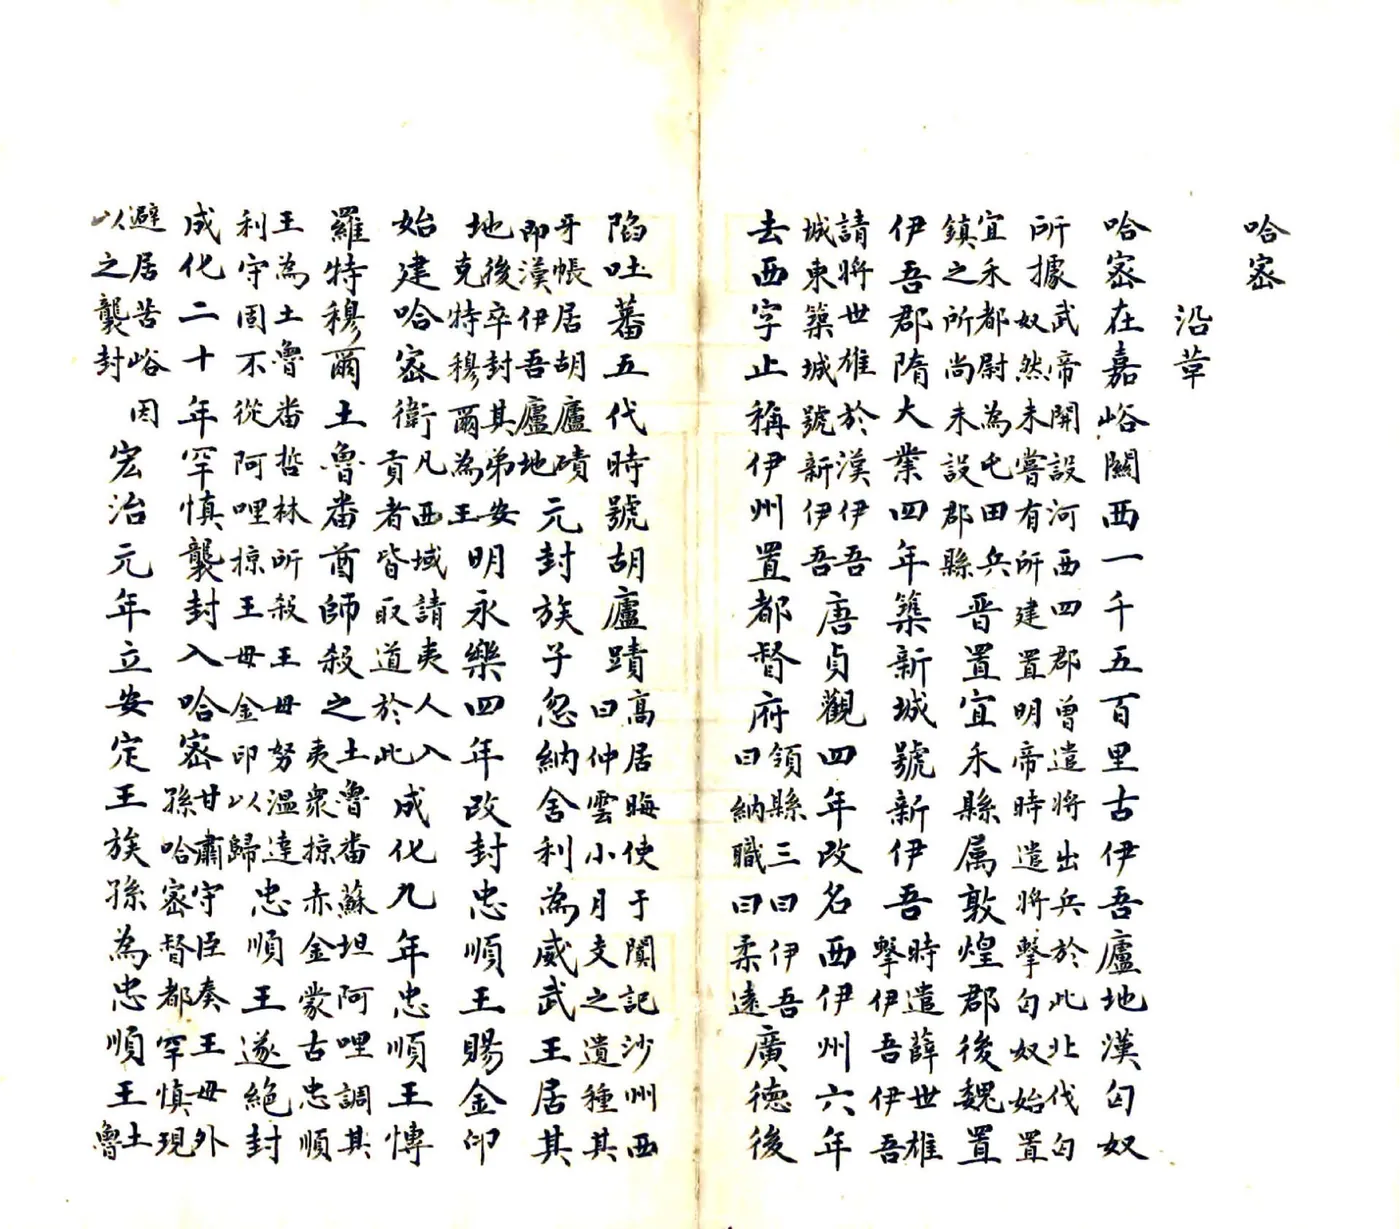 哈密
沿革
哈密在嘉峪關西一千五百里古伊吾廬地漢匈奴
所據武帝開設河西四郡曾遣將出兵於此北伐匈
奴然未嘗有所建置明帝時遣將擊匈奴始置
宜禾都尉為屯田兵
鎮之所尚未設郡縣晋置宜禾縣属敦煌郡後魏置
伊吾郡隋大業四年築新城號新伊吾時遣薛世雄
擊伊吾伊吾
請將世雄於漢伊吾
城東築城號新伊吾唐貞觀四年改名西伊州六年
去西字止稱伊州置都督府領縣三曰伊吾
曰納職曰柔遠廣德後
陷吐蕃五代時號胡廬蹟高居晦使于闐記沙州西
曰仲雲小月支之遺種其
牙帳居胡廬磧
即漢伊吾廬地元封族子忽納舍利為威武王居其
地後卒封其弟安
克特穆爾為王明永樂四年改封忠順王賜金印
始建哈密衛凡西域請夷人入
貢者皆取道於此成化九年忠順王慱
羅特穆爾土魯番酋師殺之土魯番蘇坦阿哩調其
夷衆掠赤金蒙古忠順
王為土魯番哲林所殺王母努溫達
利守国不從阿哩掠王母金印以歸忠順王遂絕封
成化二十年罕慎襲封入哈密甘肅守臣奏王母外
孫哈密督都罕慎現
避居苦峪因
以之襲封宏治元年立安定王族孫為忠順王土
魯